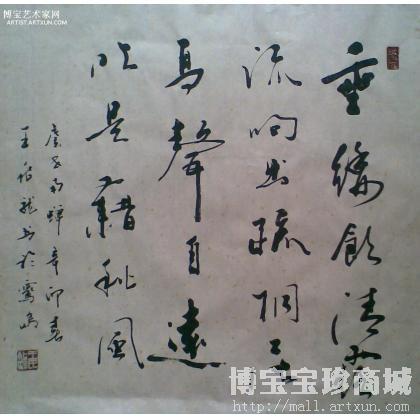 博宝艺术家网
ARTIST.ARTXUN.COM
垂緌飲清露
流响出疏桐居
高聲自遠
非是藉秋風
虞世南蝉辛卯春
王龍书於鷺島
博宝宝珍商城
http://mall.artxun.com